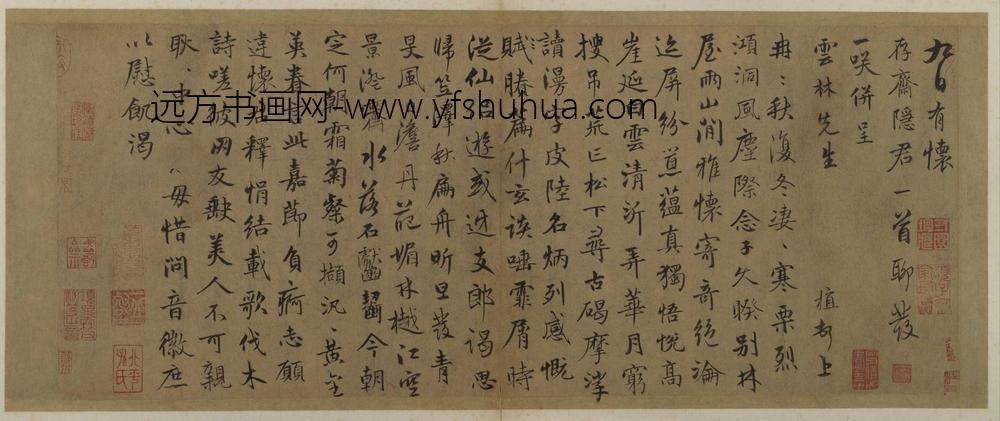 九日有懷
存齋隱君一首聊發
一咲併呈
雲林先生 植 上
冉〻秋復冬凄寒栗烈
澒洞風塵際念子久睽別林
屋兩山間雅懷寄奇絕淪
迄屏紛囂蘊真獨悟悅高
崖延雲清沂弄華月窮
搜吊荒亡松下尋古碣摩挲
讀漫字皮陸名炳列感慨
賦勝篇什玄談唾霏屑時
從仙伯遊或迓支郎謁思
歸笠澤秋扁舟昕旦發青
旻風澹丹葩媚林樾江空
景澄霽水落石獻齧今朝
定何朝霜菊粲可擷汎〻黃金
英眷此嘉節負痾志願
違懷釋悁結載歌伐木
詩嗟彼朋友缺美人不可親
耿〻中心毋惜問音徽庶
以慰飢渴
远方书画网--www.yfshuhua.com